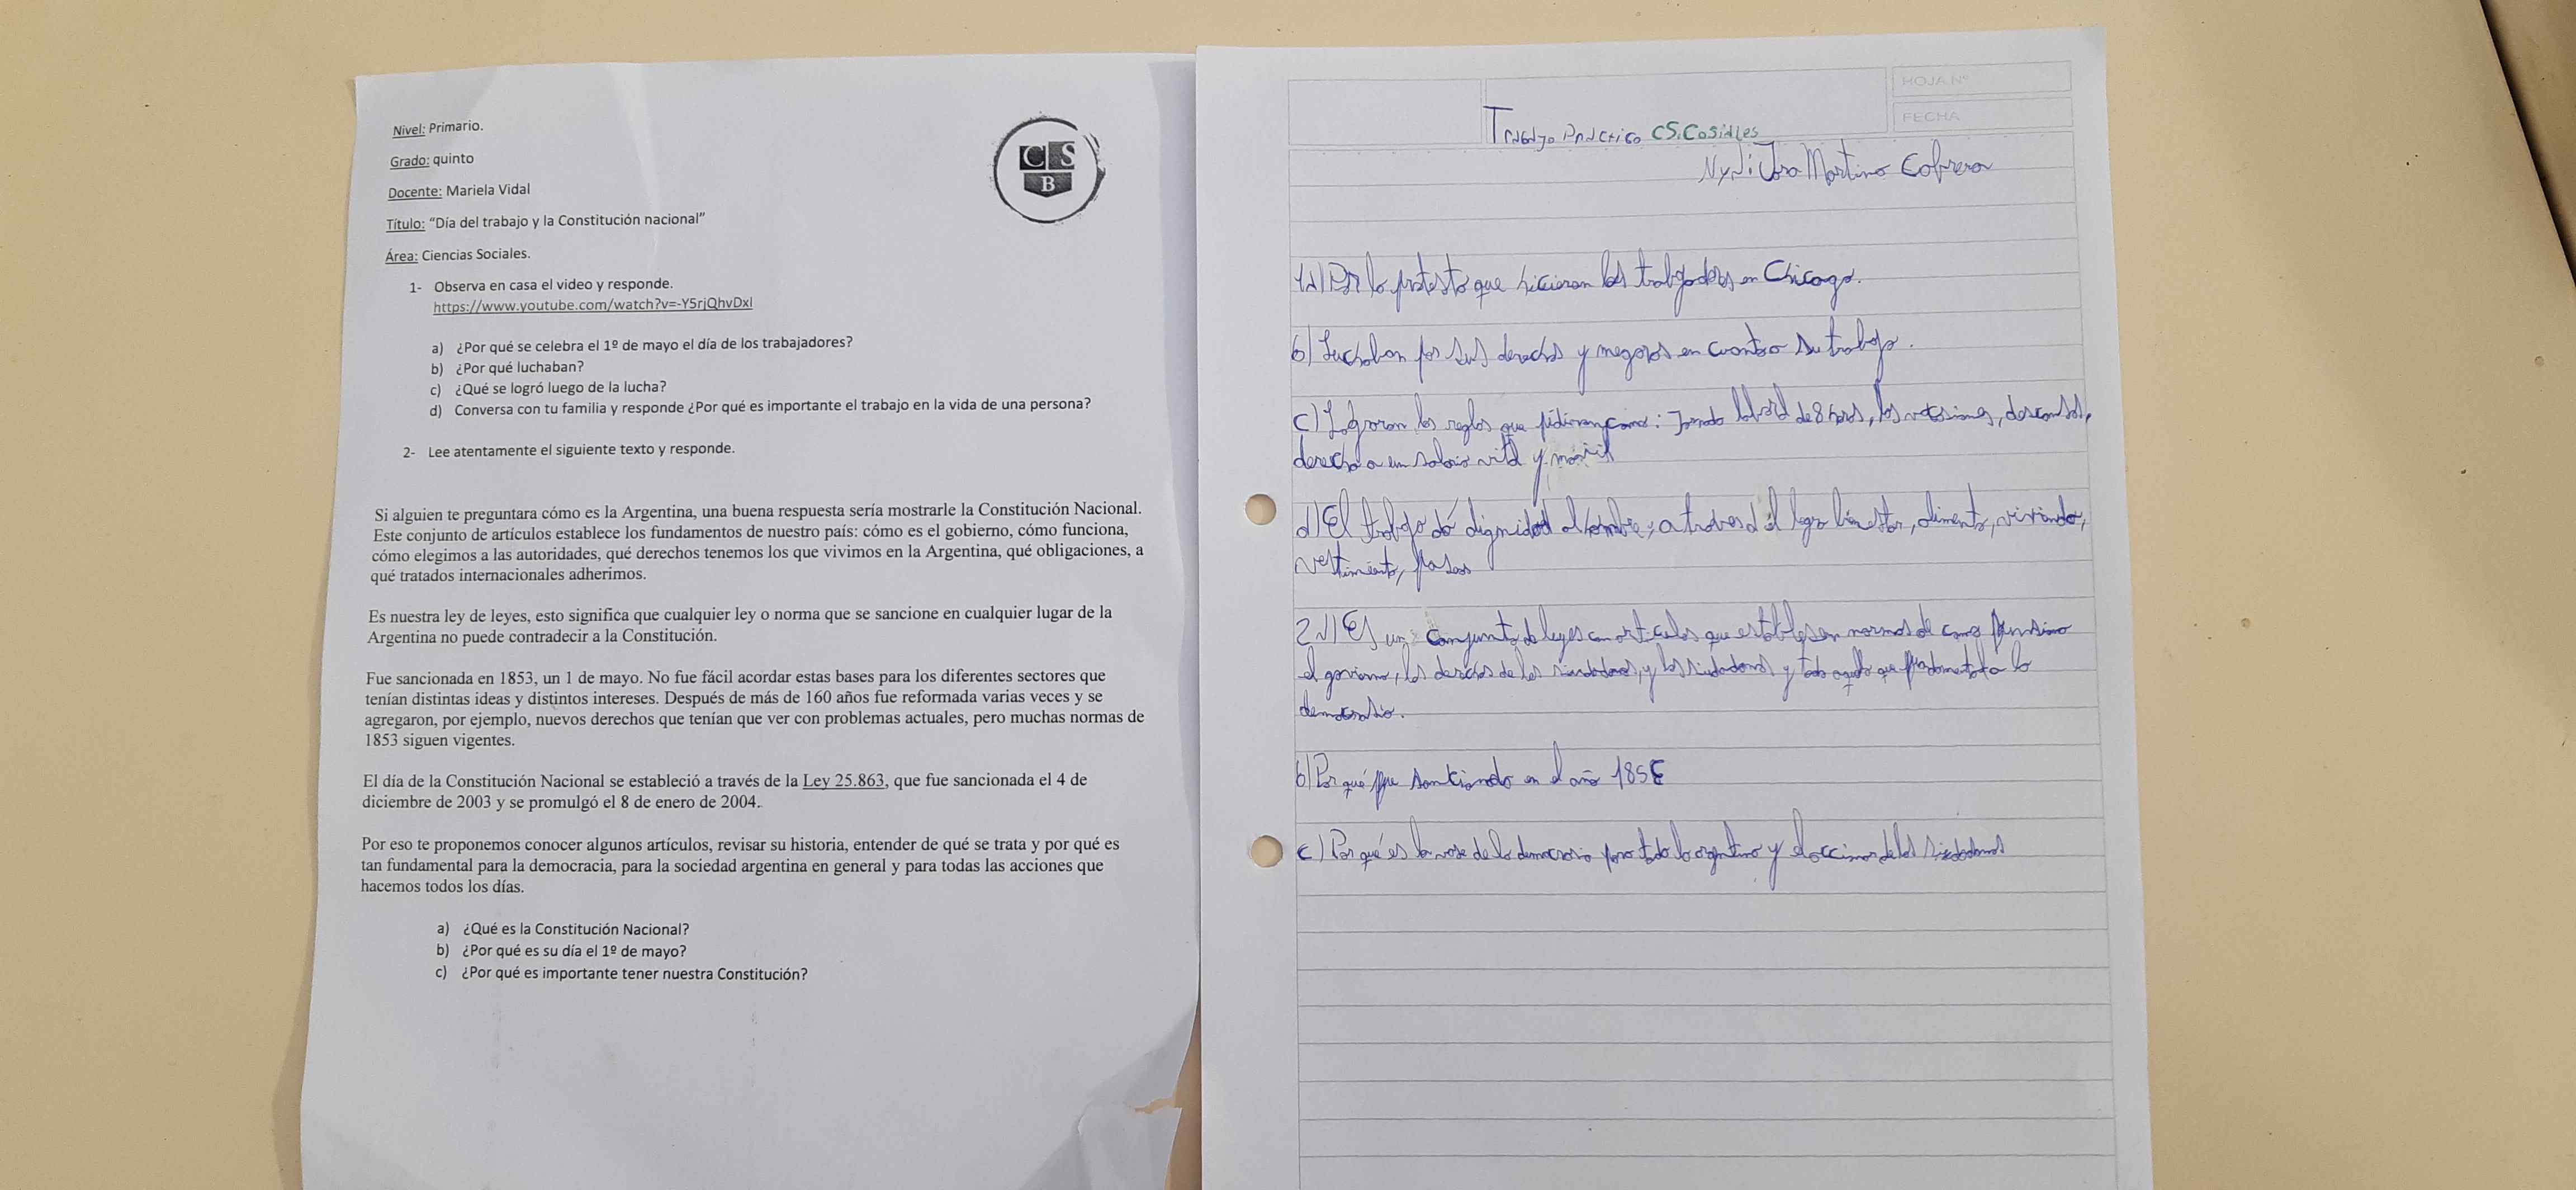 Nivel: Primario.
Grado: quinto
Docente: Mariela Vidal
Título: “Día del trabajo y la Constitución nacional”
Área: Ciencias Sociales.
C S
B
1- Observa en casa el video y responde.
https://www.youtube.com/watch?v=-Y5rjQhvDxI
a) ¿Por qué se celebra el 1º de mayo el día de los trabajadores?
b) ¿Por qué luchaban?
c) ¿Qué se logró luego de la lucha?
d) Conversa con tu familia y responde ¿Por qué es importante el trabajo en la vida de una persona?
2- Lee atentamente el siguiente texto y responde.
Si alguien te preguntara cómo es la Argentina, una buena respuesta sería mostrarle la Constitución Nacional.
Este conjunto de artículos establece los fundamentos de nuestro país: cómo es el gobierno, cómo funciona,
cómo elegimos a las autoridades, qué derechos tenemos los que vivimos en la Argentina, qué obligaciones, a
qué tratados internacionales adherimos.
Es nuestra ley de leyes, esto significa que cualquier ley o norma que se sancione en cualquier lugar de la
Argentina no puede contradecir a la Constitución.
Fue sancionada en 1853, un 1 de mayo. No fue fácil acordar estas bases para los diferentes sectores que
tenían distintas ideas y distintos intereses. Después de más de 160 años fue reformada varias veces y se
agregaron, por ejemplo, nuevos derechos que tenían que ver con problemas actuales, pero muchas normas de
1853 siguen vigentes.
El día de la Constitución Nacional se estableció a través de la Ley 25.863, que fue sancionada el 4 de
diciembre de 2003 y se promulgó el 8 de enero de 2004.
Por eso te proponemos conocer algunos artículos, revisar su historia, entender de qué se trata y por qué es
tan fundamental para la democracia, para la sociedad argentina en general y para todas las acciones que
hacemos todos los días.
a) ¿Qué es la Constitución Nacional?
b) ¿Por qué es su día el 1º de mayo?
c) ¿Por qué es importante tener nuestra Constitución?
HOJA Nº
FECHA
Trabajo Practico CS.Cosiales
NyA: Martino Cabrera
1a) Por la protesta que hicieron los trabajadores en Chicago.
b) Luchaban por sus derechos y megoras en cuanto a su trabajo.
c) Lograron las reglas que pidieron como: Jornada laboral de 8 horas, las vacasiones, descansos,
derecho a un salario vital y movil
d) El trabajo dá dignidad al hombre, a traves d él logra bienestar, alimento, vivienda,
vestimenta, paseos
2a) Es un conjunto de leyes con articulos que establesen normas de como funsiona
el govierno, los derechos de los siudadanos, y los siudadanos y todo aquello que la
democrasia.
b) Por qué fue sancionada en el año
c) Por qué es la vase de la democrasia para todo lo argentino y el accionar de los siudadanos